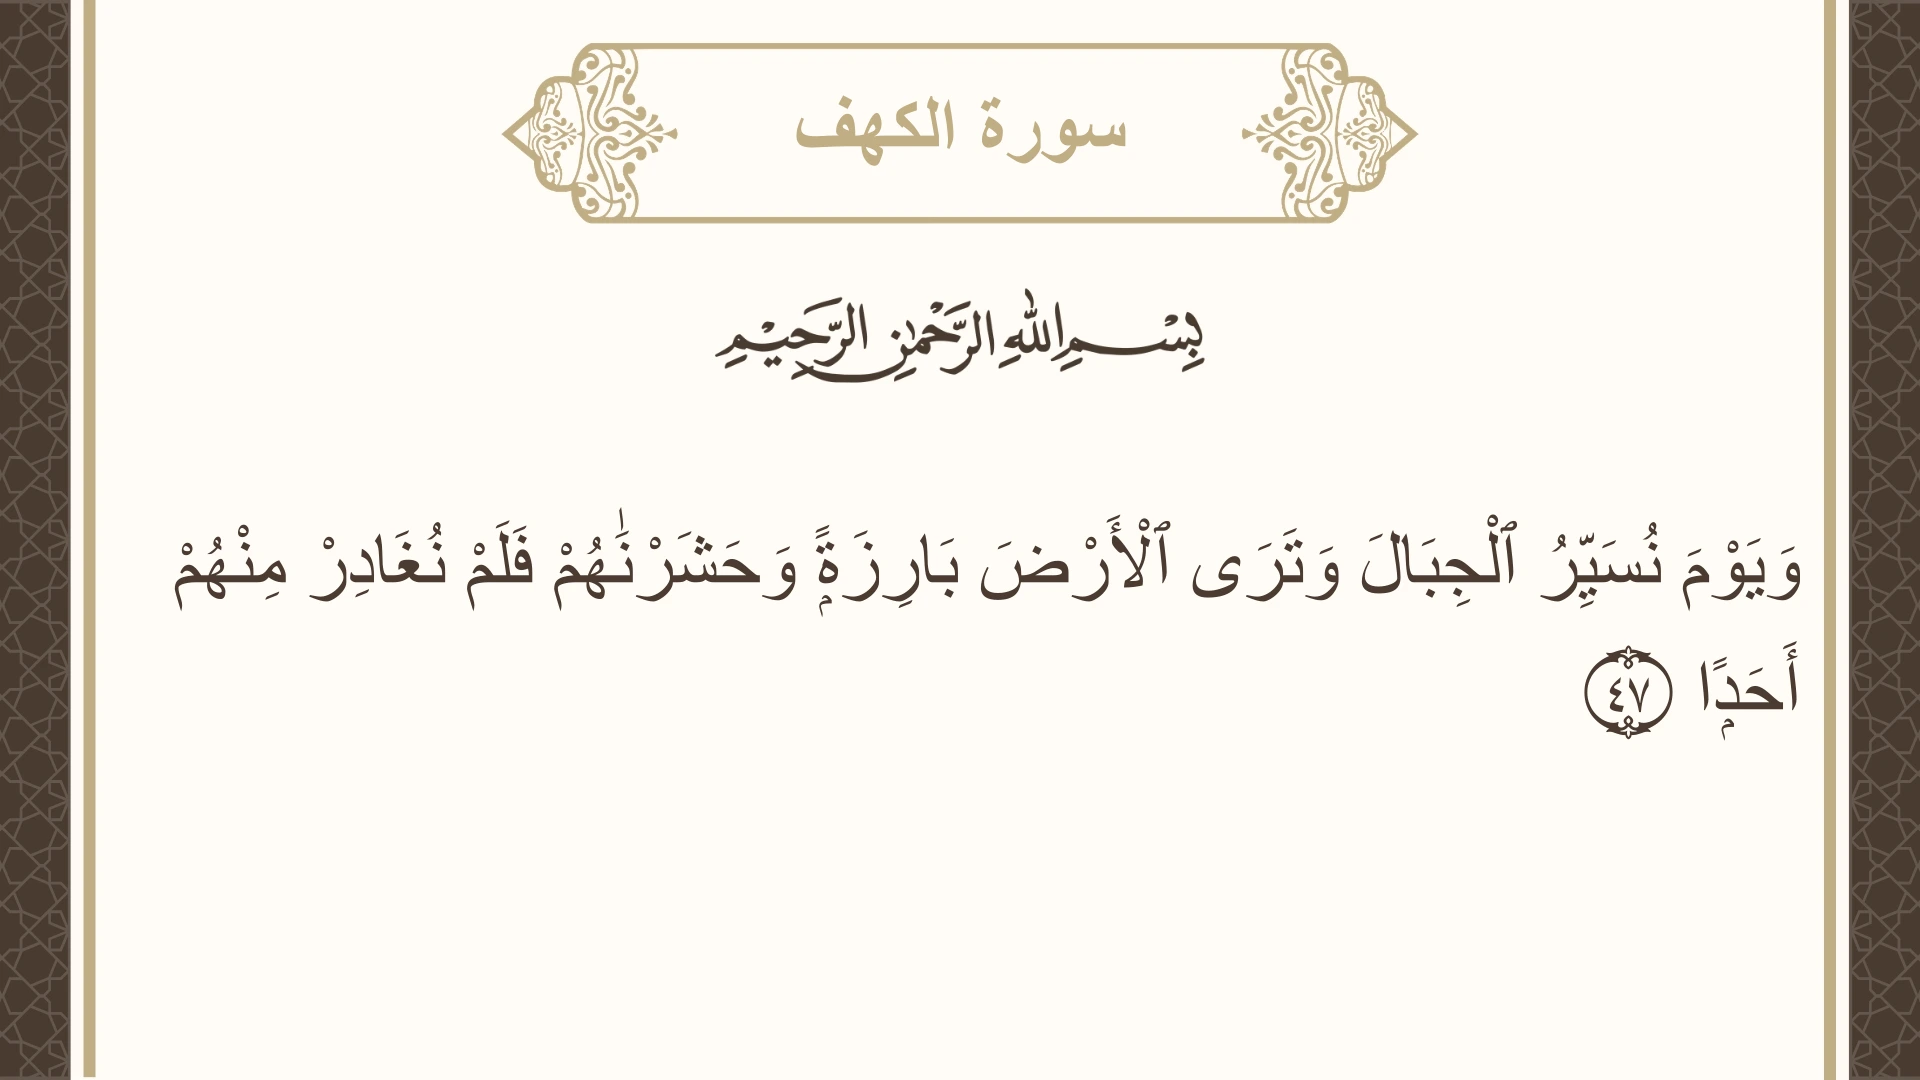 سورة الكهف
بِسْمِ اللهِ الرَّحْمٰنِ الرَّحِيْمِ
وَيَوْمَ نُسَيِّرُ ٱلْجِبَالَ وَتَرَى ٱلْأَرْضَ بَارِزَةًۭ وَحَشَرْنَـٰهُمْ فَلَمْ نُغَادِرْ مِنْهُمْ
أَحَدًۭا ٤٧